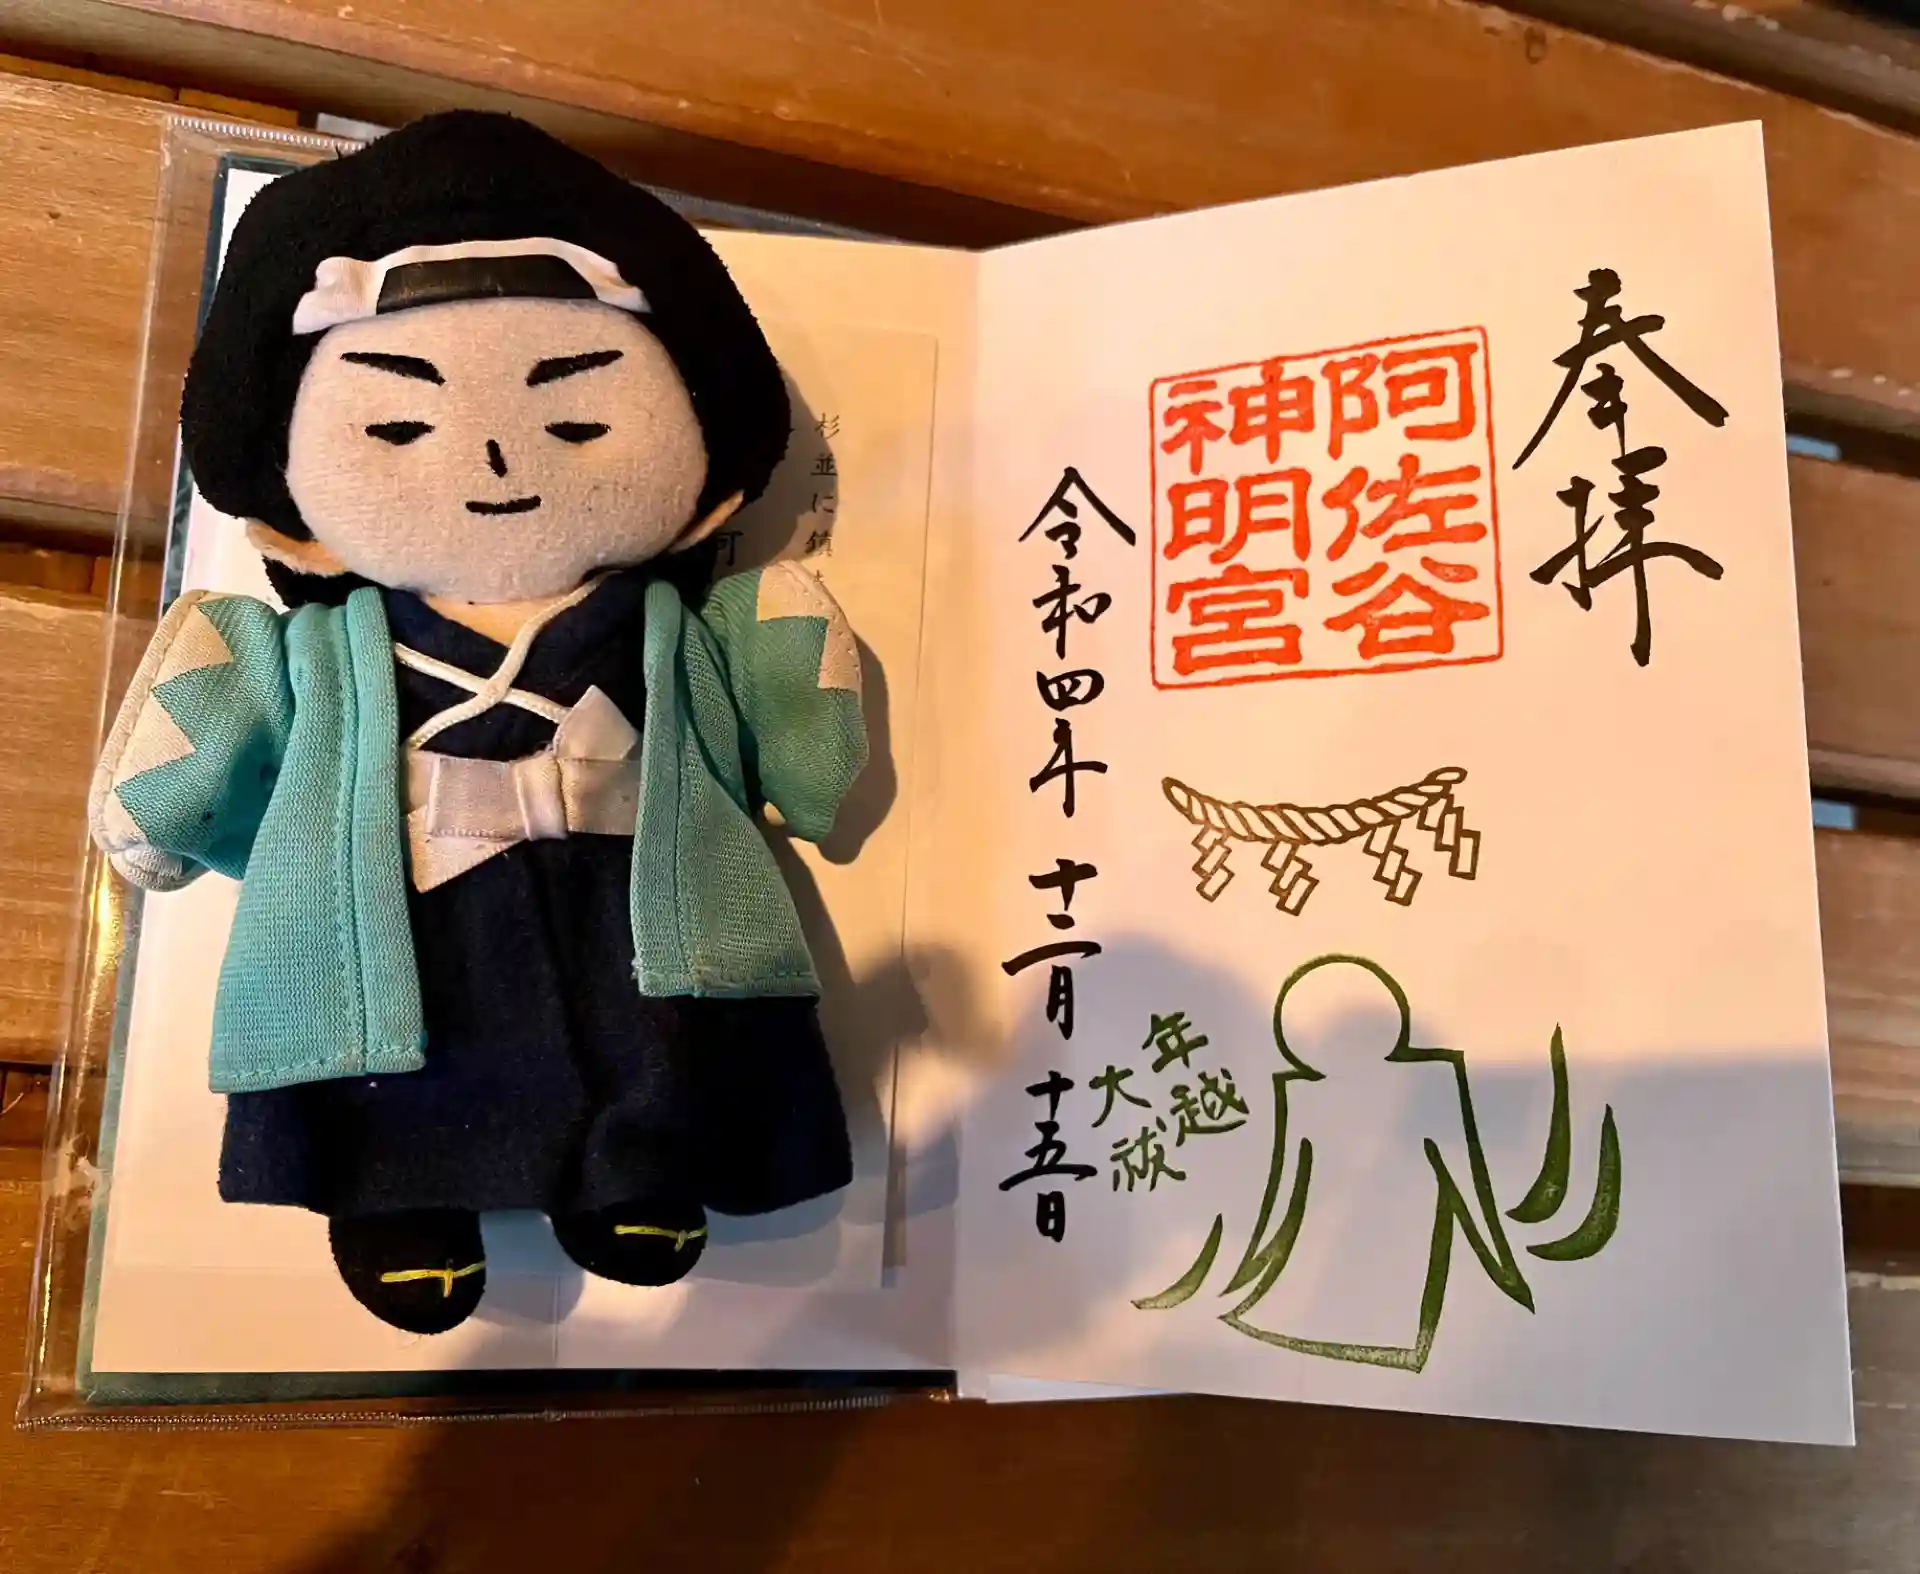 奉拝
阿佐谷
神明宮
令和四年 十二月 十五日
年越
大祓
杉並に鎮